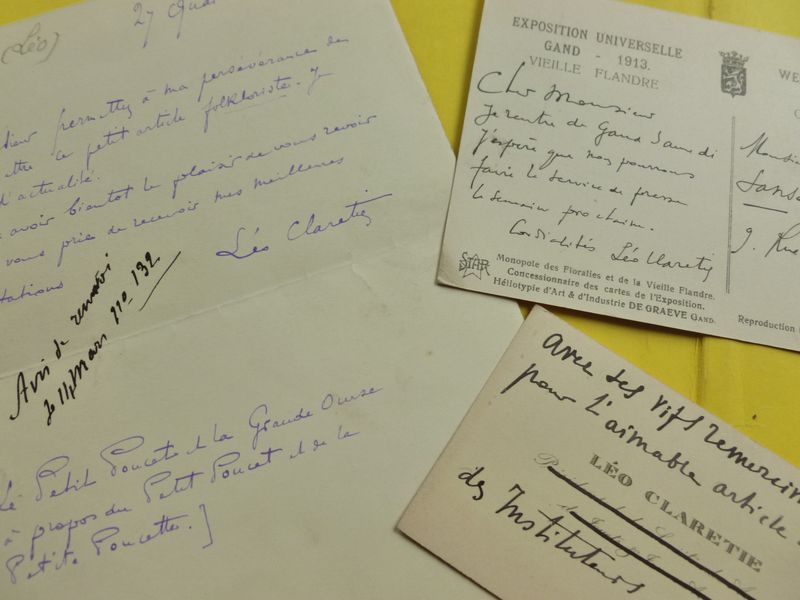 (Léo)
27 Quai
permettez à ma persévérance de
ce petit article folkloriste. Je
d'actualité.
avoir bientôt le plaisir de vous revoir
vous prie de recevoir mes meilleures
Léo Claretie
Avis de
le 14 Mars no 132
Le Petit Poucet et la Grande Ourse
à propos du Petit Poucet et de la
Petite Poucette.]
EXPOSITION UNIVERSELLE
GAND - 1913.
VIEILLE FLANDRE
Cher Monsieur
Je rentre de Gand Samedi
J'espère que nous pourrons
faire le service de presse
la semaine prochaine.
Cordialités Léo Claretie
STAR
Monopole des Floralies et de la Vieille Flandre.
Concessionnaire des cartes de l'Exposition.
Héliotypie d'Art & d'Industrie DE GRAEVE GAND.
WE
9. Rue
Reproduction
avec ses vifs
pour l'aimable article
LÉO CLARETIE
des Instituteurs